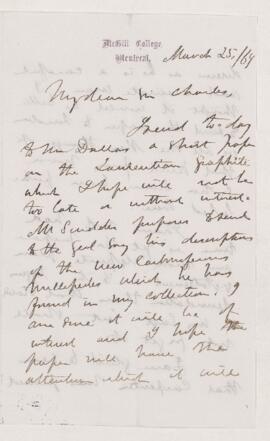 McGill College,
Montreal.
March 25/69
My dear Sir Charles,
I send to-day
to Mr Dallas a short paper
on the Laurentian Graphite
which I hope will not be
too late or without interest.
Mr Scudder purposes to send
to the Geol Socy his descriptions
of the new Carboniferous
Millepedes which he has
found in my collection. I
am sure it will be of
interest and I hope the
paper will have the
attention which it will